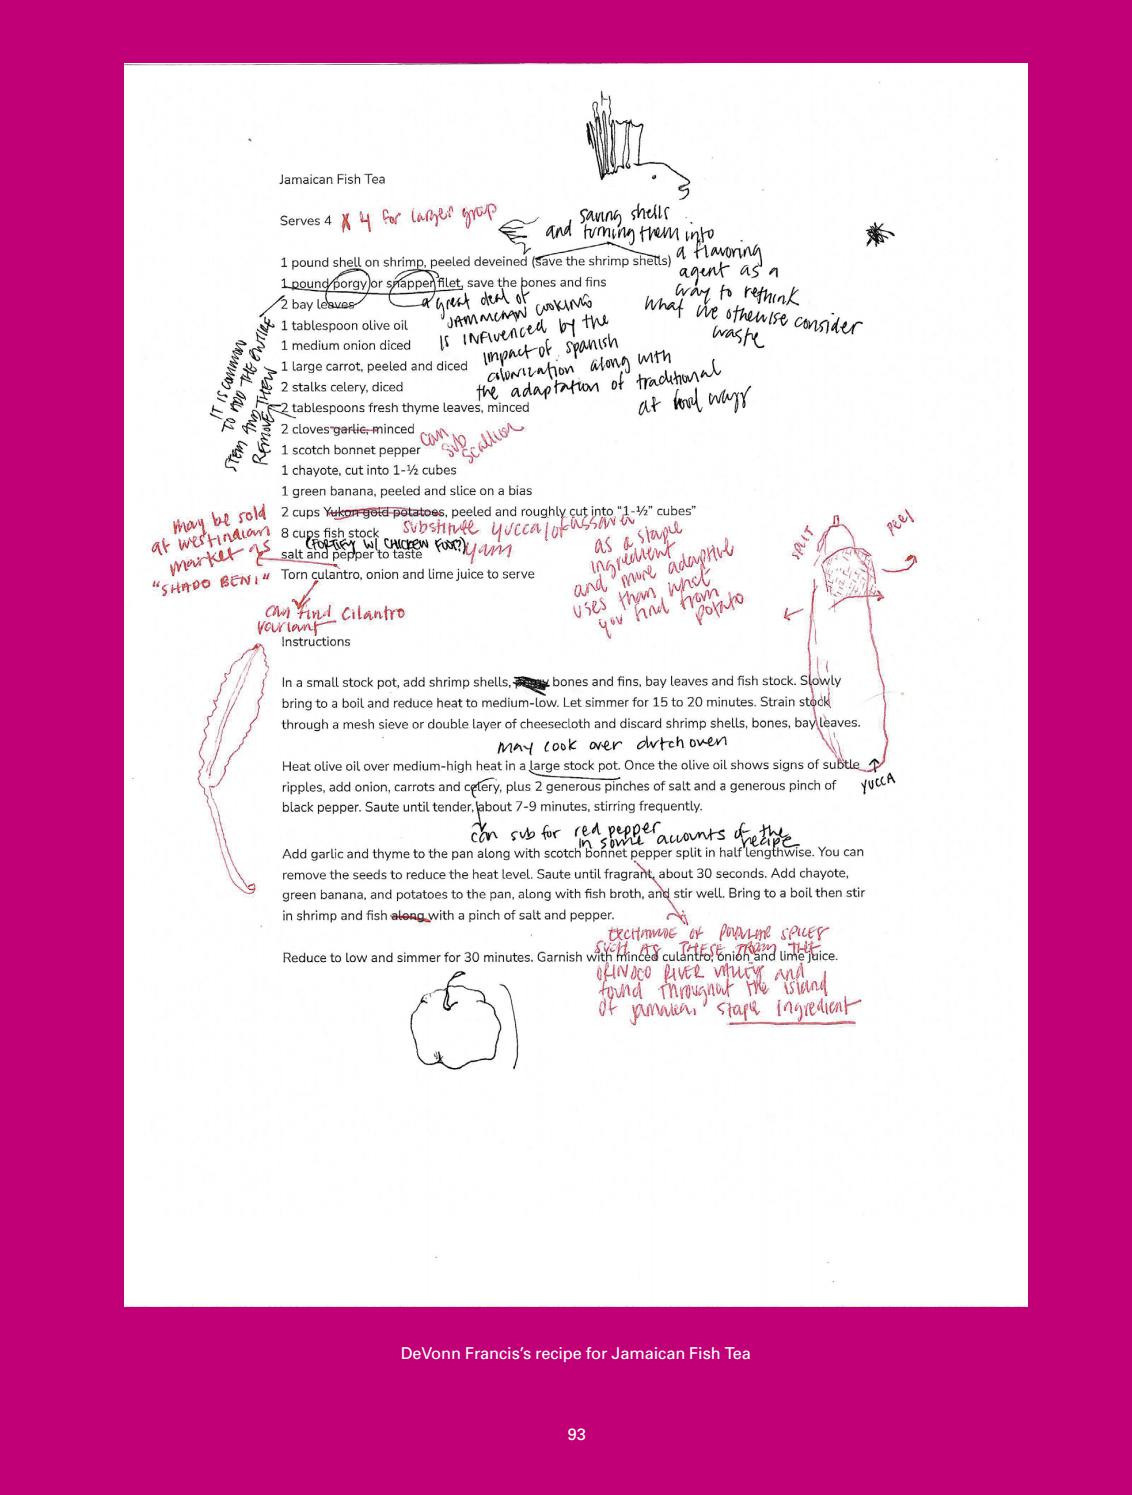 Jamaican Fish Tea
Serves 4
x 4 for larger group
saving shells
and turning them into
a flavoring
agent as a
way to rethink
what we otherwise consider
waste
1 pound shell on shrimp, peeled deveined (save the shrimp shells)
1 pound porgy or snapper filet, save the bones and fins
2 bay leaves
a great deal of
JAMAICAN COOKING
IS INFLUENCED by the
impact of spanish
colonization along with
the adaptation of traditional
food ways
1 tablespoon olive oil
1 medium onion diced
1 large carrot, peeled and diced
2 stalks celery, diced
2 tablespoons fresh thyme leaves, minced
IT IS COMMON
TO ADD THE ENTIRE
STEM AND THEN
REMOVE
2 cloves garlic, minced
can
sub
scallion
1 scotch bonnet pepper
1 chayote, cut into 1-½ cubes
1 green banana, peeled and slice on a bias
2 cups Yukon gold potatoes, peeled and roughly cut into “1-½” cubes”
substitute yucca/or cassava
yam
as a staple
ingredient
and more adaptive
uses than what
you find from
potato
8 cups fish stock
(FORTIFY W/ CHICKEN FOOT?)
salt and pepper to taste
Torn culantro, onion and lime juice to serve
may be sold
at westindian
market as
"SHADO BENI"
can find cilantro
variant
SPLIT
PEEL
Instructions
In a small stock pot, add shrimp shells, bones and fins, bay leaves and fish stock. Slowly
bring to a boil and reduce heat to medium-low. Let simmer for 15 to 20 minutes. Strain stock
through a mesh sieve or double layer of cheesecloth and discard shrimp shells, bones, bay leaves.
may cook over dutch oven
Heat olive oil over medium-high heat in a large stock pot. Once the olive oil shows signs of subtle
ripples, add onion, carrots and celery, plus 2 generous pinches of salt and a generous pinch of
black pepper. Saute until tender, about 7-9 minutes, stirring frequently.
YUCCA
can sub for red pepper
in some accounts of the
recipe
Add garlic and thyme to the pan along with scotch bonnet pepper split in half lengthwise. You can
remove the seeds to reduce the heat level. Saute until fragrant, about 30 seconds. Add chayote,
green banana, and potatoes to the pan, along with fish broth, and stir well. Bring to a boil then stir
in shrimp and fish along with a pinch of salt and pepper.
EXCHANGE OF POPULAR SPICES
SUCH AS THESE FROM THE
ORINOCO RIVER VALLEY and
found throughout the island
of jamaica, staple ingredient
Reduce to low and simmer for 30 minutes. Garnish with minced culantro, onion and lime juice.
DeVonn Francis’s recipe for Jamaican Fish Tea
93